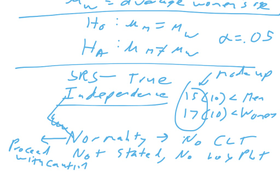 μw = average women's
H0 : μm = μw
HA : μm ≠ μw
α = .05
SRS - True
made up
Independence
15(10) < Men
17(10) < Women
Normality → No CLT
Proceed with caution
Not stated, No box plt